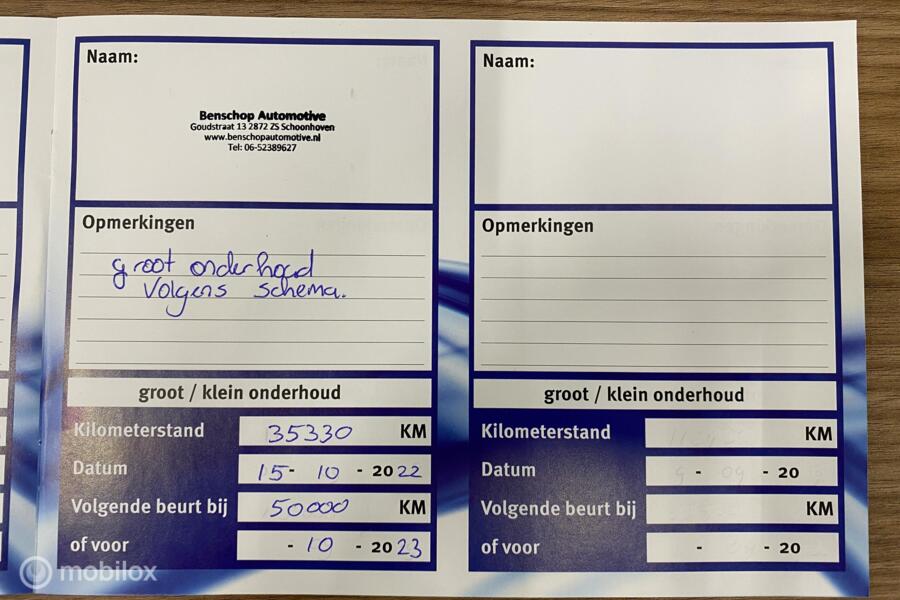 Naam:
Benschop Automotive
Goudstraat 13 2872 ZS Schoonhoven
www.benschopautomotive.nl
Tel: 06-52389627
Opmerkingen
groot onderhoud
volgens schema.
groot / klein onderhoud
Kilometerstand 35330 KM
Datum 15- 10 - 2022
Volgende beurt bij 50000 KM
of voor - 10 - 2023
Naam:
Opmerkingen
groot / klein onderhoud
Kilometerstand KM
Datum - - 20
Volgende beurt bij KM
of voor - - 20
mobilox